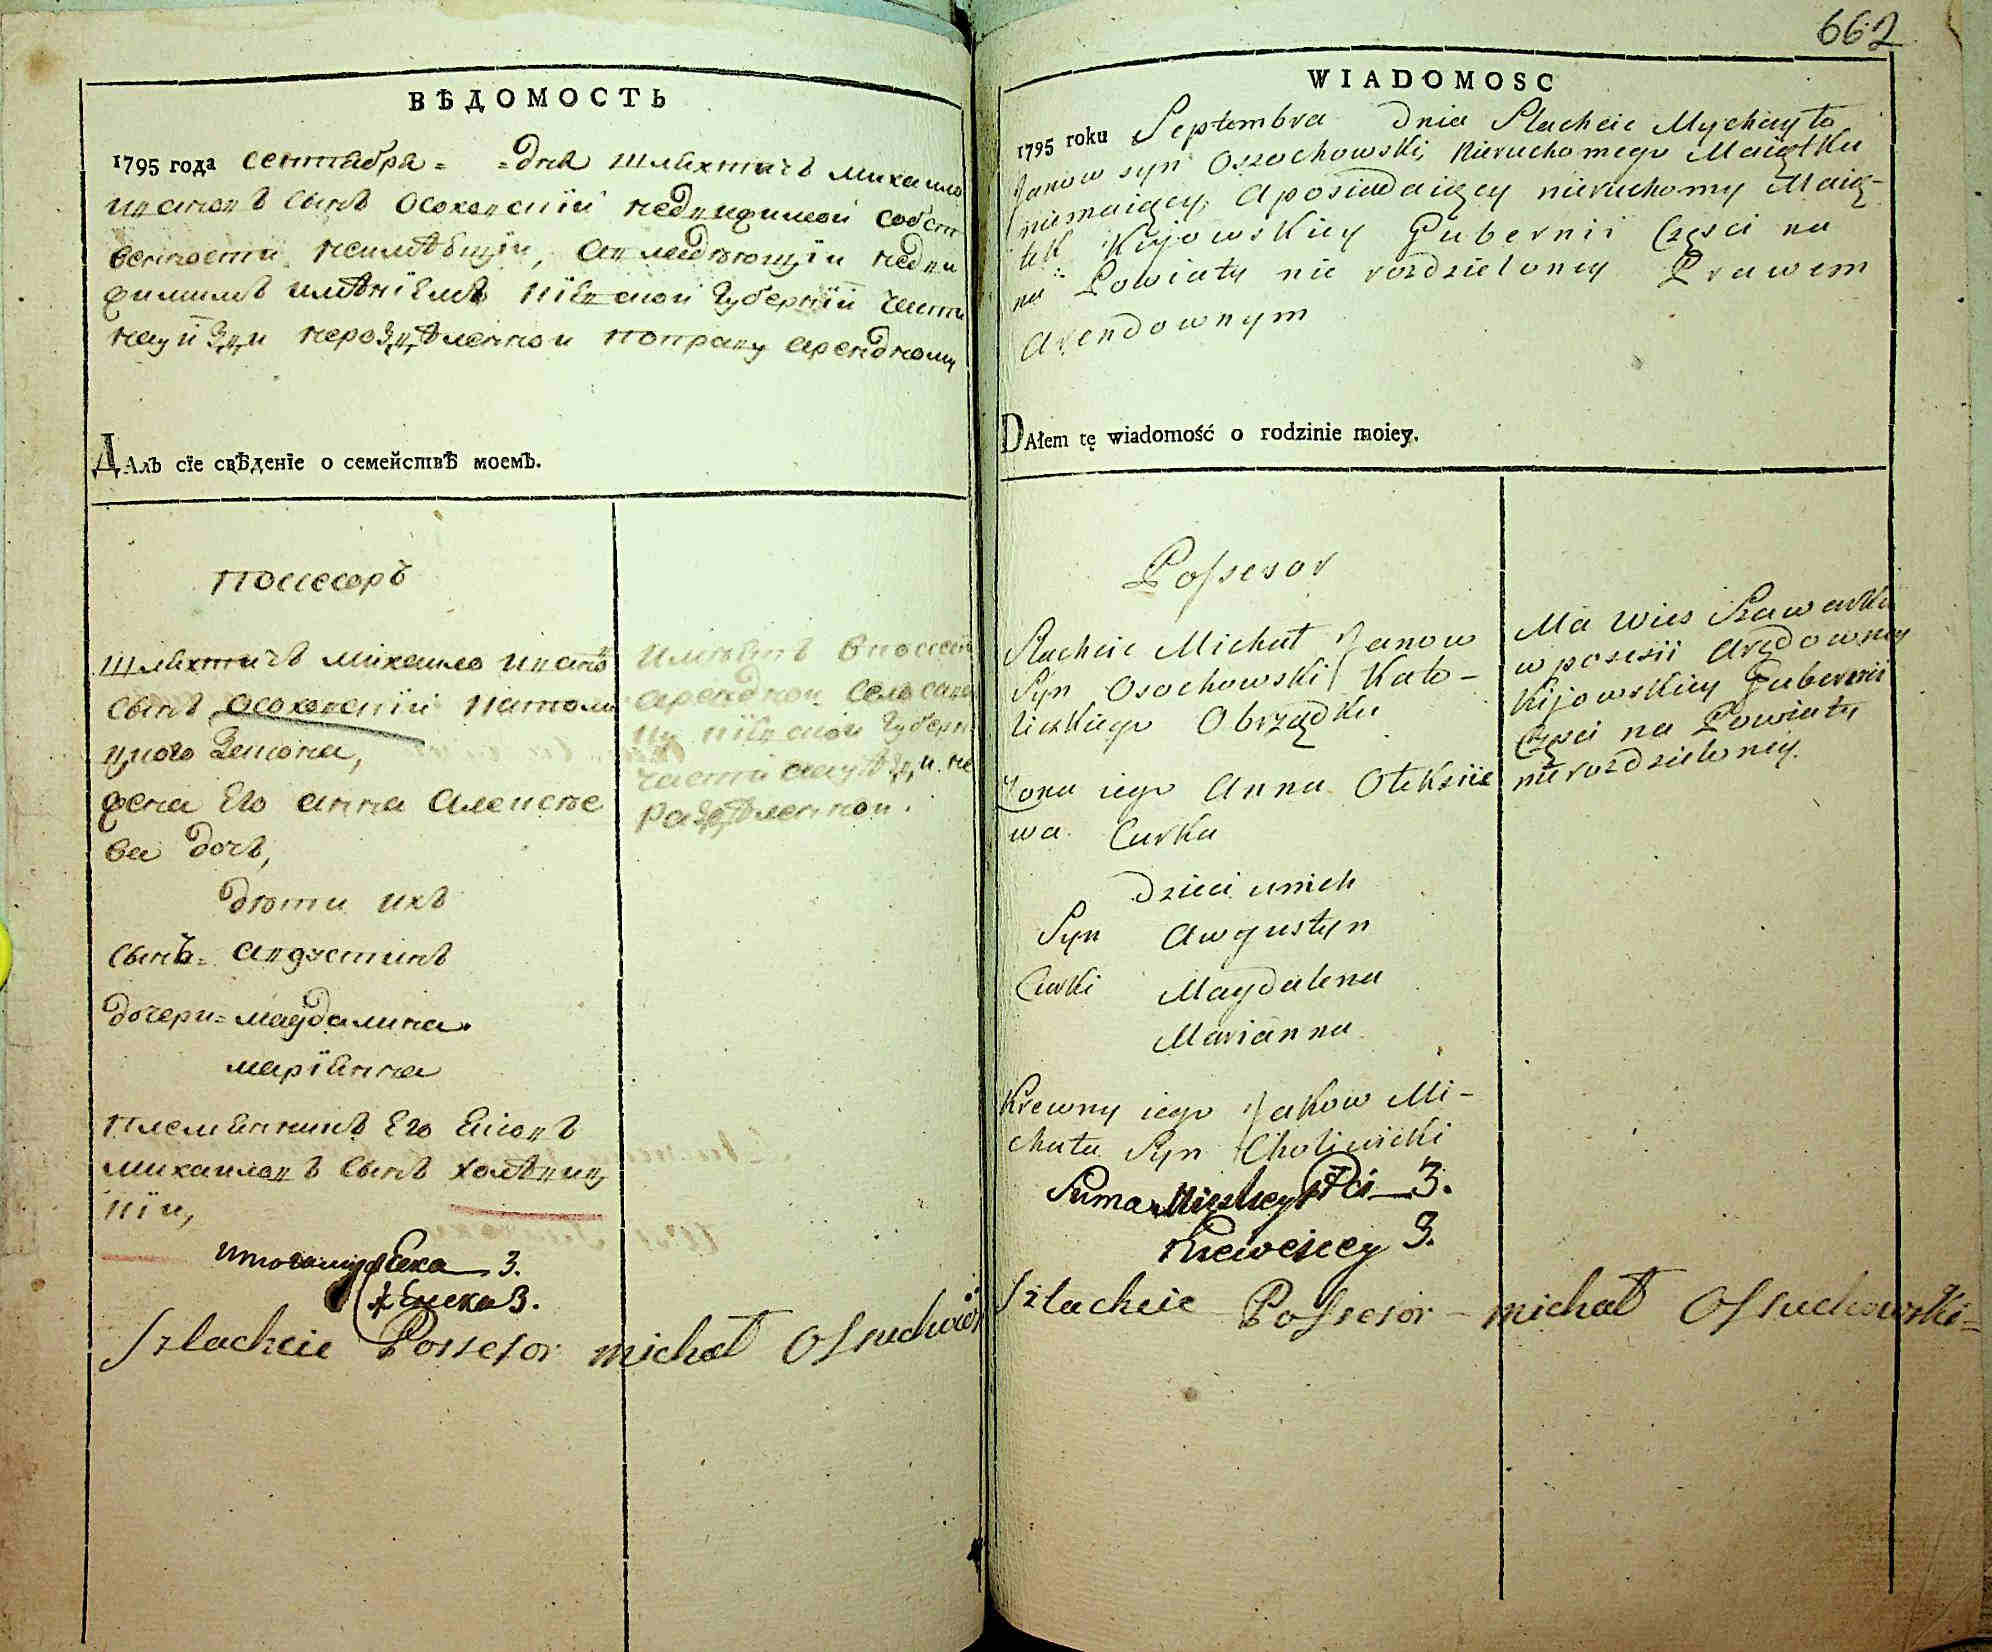 ВѢДОМОСТЬ
1795 года сентября = = дня шляхтичъ михаило
ивановъ сынъ осоховскій недвижимой собст
венности неимѣющій, авладѣющій недви
жимимъ имѣніемъ кіевской губерніи части
науѣзди неразделенной поправу арендному
Далъ сїе свѣденїе о семействѣ моемъ.
поссесоръ
шляхтичъ михаило ивановъ
сынъ осоховскій католи
цкого закона,
жена его анна алексѣе
ва дочь,
дѣти ихъ
сынъ = августинъ
дочери = магдалина
маріянна
племянникъ его яковъ
михаиловъ сынъ холѣвиц
кій,
итого мужеска 3.
женска 3.
имѣетъ впоссесіи
арендной село
кіевской губерніи
части науѣзди не
разделенной.
Szlachcic Possesor michał Ossuchowski
662
WIADOMOSC
1795 roku Septembra Dnia Slachcic Mychayło
Janow syn Oszochowski, Nieruchomego Maiątku
niemaiący, aposiadaiący nieruchomy Maią-
tek Kijowskiey Gubernii Częsci na
na Powiaty nie rozdzieloney Prawem
arendownym
DAłem tę wiadomość o rodzinie moiey.
Possesor
Slachcic Michał Janow
Syn Osochowski Kato-
lickiego Obrządku
Zona iego Anna Oleksiie
wa Curka
Dzieci unich
Syn Awgustyn
Curki Magdalena
Marianna
Krewny iego Jakow Mi-
chała Syn Choliwicki
Suma Męskey Płci 3.
Niewiescey 3.
Ma wies Szawarku
w posesii arędowney
Kijowskiey Gubernii
Częsci na Powiaty
nierozdzieloney.
Szlachcic Possesor - michał Ossuchowski -